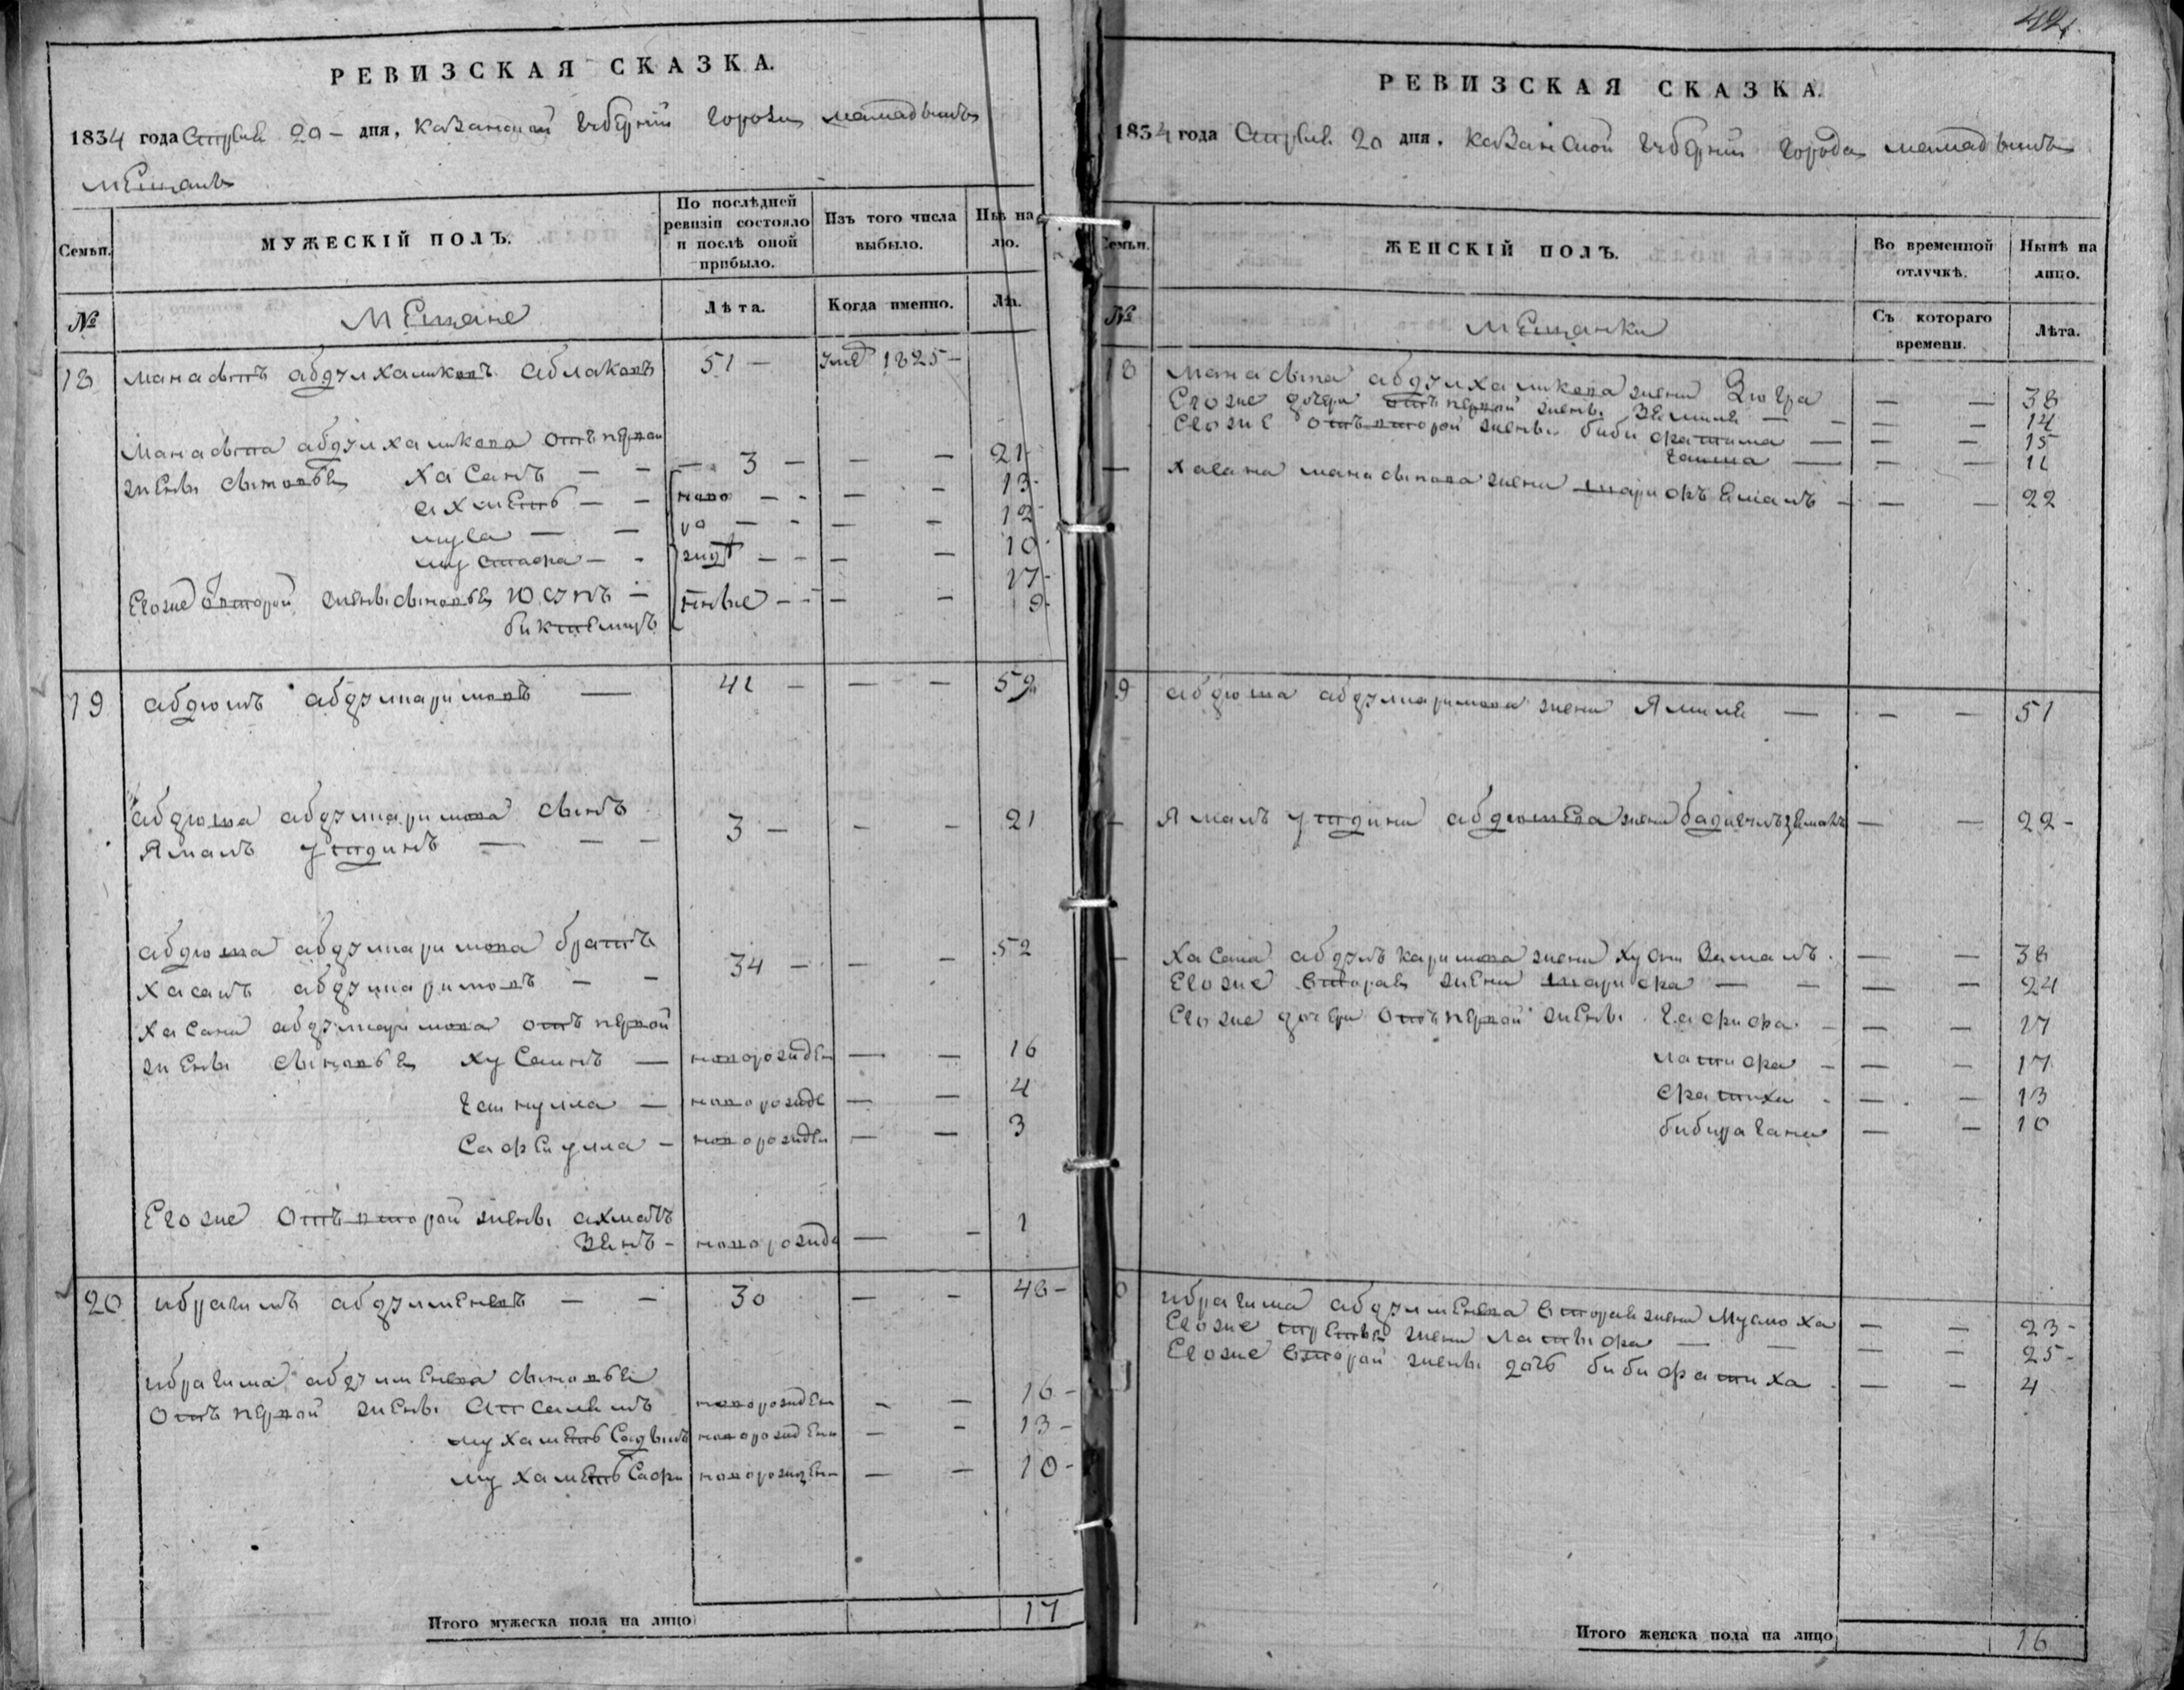 РЕВИЗСКАЯ СКАЗКА.
1834 года Апреля 20 – дня, Казанской губернии города мамадыша
мещанъ
Семьи.
МУЖЕСКІЙ ПОЛЪ.
По послѣдней ревизіи состояло и послѣ оной прибыло.
Изъ того числа выбыло.
Нынѣ на лицо.
№
Мещане
Лѣта.
Когда именно.
Лѣта.
18 манасыпъ абдулхаликовъ аблаковъ 51 – умер 1825 –
манасыпа абдулхаликова отъ первой
жены сыновья хасанъ – – 3 – – – 21
ахметъ – – ново – – – – 13
муса – – ро – – – – 12
мустафа – – жд – – – – 10
Его же второй жены сыновья юсупъ – енные – – – – 17
биктемиръ 9
19 абдюшъ абдулкаримовъ — 41 – – – 59
абдюша абдулкаримова сынъ
Ямалъ утдинъ — – – 3 – – – 21
абдюша абдулкаримова братъ
хасанъ абдулкаримовъ – – 34 – – – 52
хасана абдулкаримова отъ первой
жены сыновья хусаинъ — новорожден — – 16
гайнулла — новорожде — – 4
Сафеулла – новорожден — – 3
Его же отъ второй жены ахметъ
зянъ – новорожде — – 1
20 ибрагимъ абдулменевъ – – 30 – – 48 –
ибрагима абдулменева сыновья
отъ первой жены апсалямъ новорожден – – 16 –
мухаметъ Садыкъ новорожден – – 13 –
мухаметъ Сафи новорожден – – 10 –
Итого мужеска пола на лицо 17
РЕВИЗСКАЯ СКАЗКА.
1834 года Апреля 20 дня, Казанской губернии города мамадыша
Семьи.
ЖЕНСКІЙ ПОЛЪ.
Во временной отлучкѣ.
Нынѣ на лицо.
№
мещанки
Съ котораго времени.
Лѣта.
18 манасыпа абдулхаликова жена Зюгра – – 38
Его же дочери отъ первой жены – – 14
Его же отъ второй жены биби фатима — – – 15
гайша — – – 11
хасана манасыпова жена шарифъ Ямалъ – – – 22
19 абдюша абдулкаримова жена Ямиля — – – 51
Ямалъ утдина абдюшева жена бадигилъзямалъ – – 22 –
хасана абдулъкаримова жена хуснизямалъ – – 38
Его же вторая жена шарифа — – – – 24
Его же дочери отъ первой жены гафифа – – – 17
латифа – – – 17
фатиха – – 13
бибирагана – – 10
ибрагима абдулменева вторая жена Муслюха – – 23 –
Его же третья жена латыфа — — – – 25 –
Его же второй жены дочь бибифатиха – – 4
Итого женска пола на лицо 16